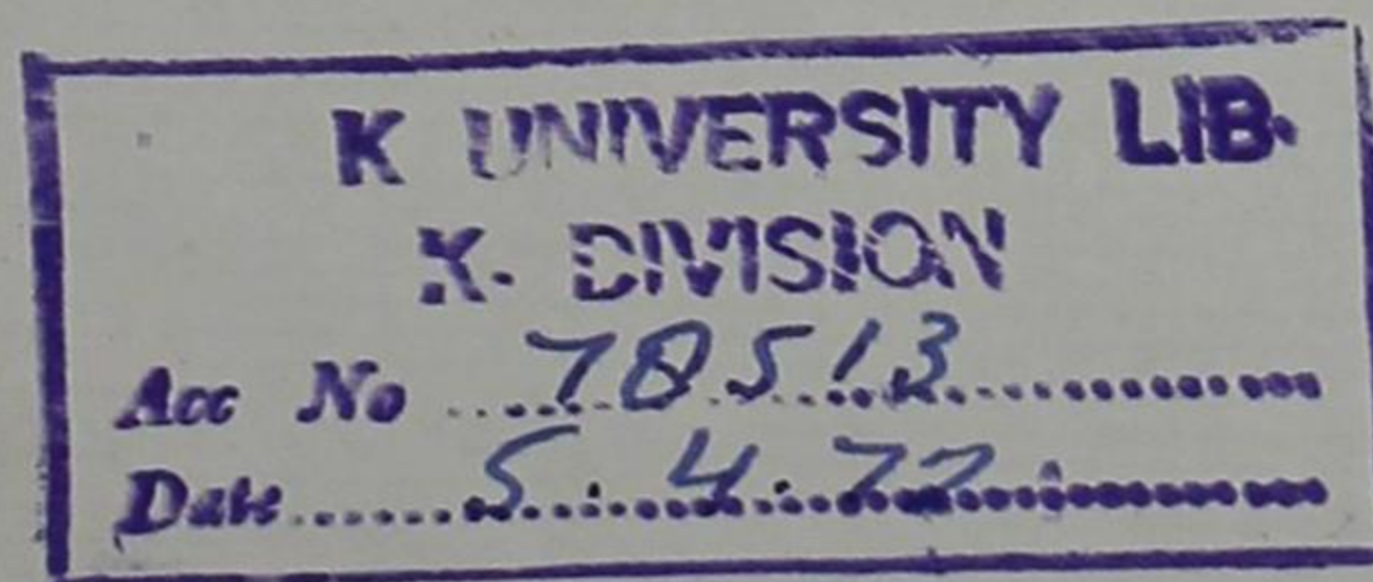 K UNIVERSITY LIB.
K. DIVISION
Acc No 78513
Date 5.4.77